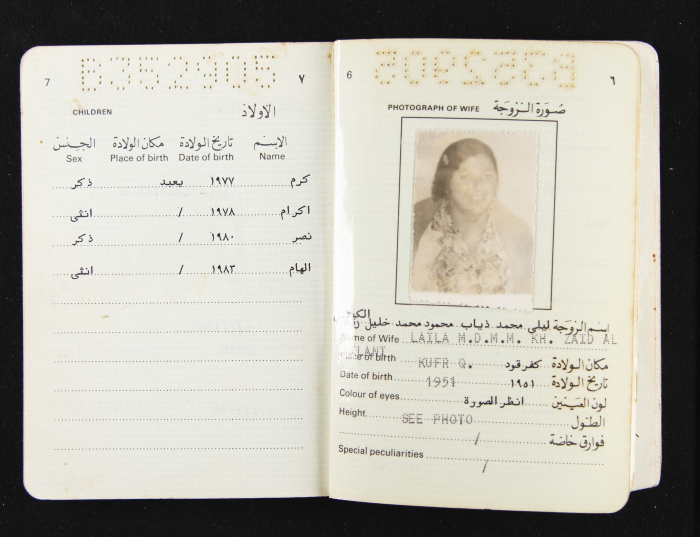 7 B352905 ٧
CHILDREN الاولاد
الجنس مكان الولادة تاريخ الولادة الاسم
Sex Place of birth Date of birth Name
كرم ١٩٧٧ يعبد ذكر
اكرام ١٩٧٨ / انثى
نصر ١٩٨٠ / ذكر
الهام ١٩٨٣ / انثى
6 B352905 ٦
PHOTOGRAPH OF WIFE صورة الزوجة
اسم الزوجة ليلى محمد ذياب محمود محمد خليل
Name of Wife LAILA M.D.M.M. KH. ZAID AL
Place of birth KUFR Q. كفر قود مكان الولادة
Date of birth 1951 ١٩٥١ تاريخ الولادة
Colour of eyes انظر الصورة لون العينين
Height SEE PHOTO الطول
/ فوارق خاصة
Special peculiarities /